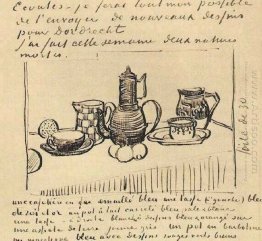 Ecoutes - je ferai tout mon possible
de t'envoyer de nouveaux dessins
pour Dordrecht
J'ai fait cette semaine deux natures
mortes.
toile de 30
une cafetière en émaillé bleu une tasse (à gauche) bleu
de roi et or un pot à lait bleu
une tasse à droite blanche dessins bleu orangé sur
une assiette de terre jaune gris un pot en barbotine
bleu avec dessins rouges verts bruns